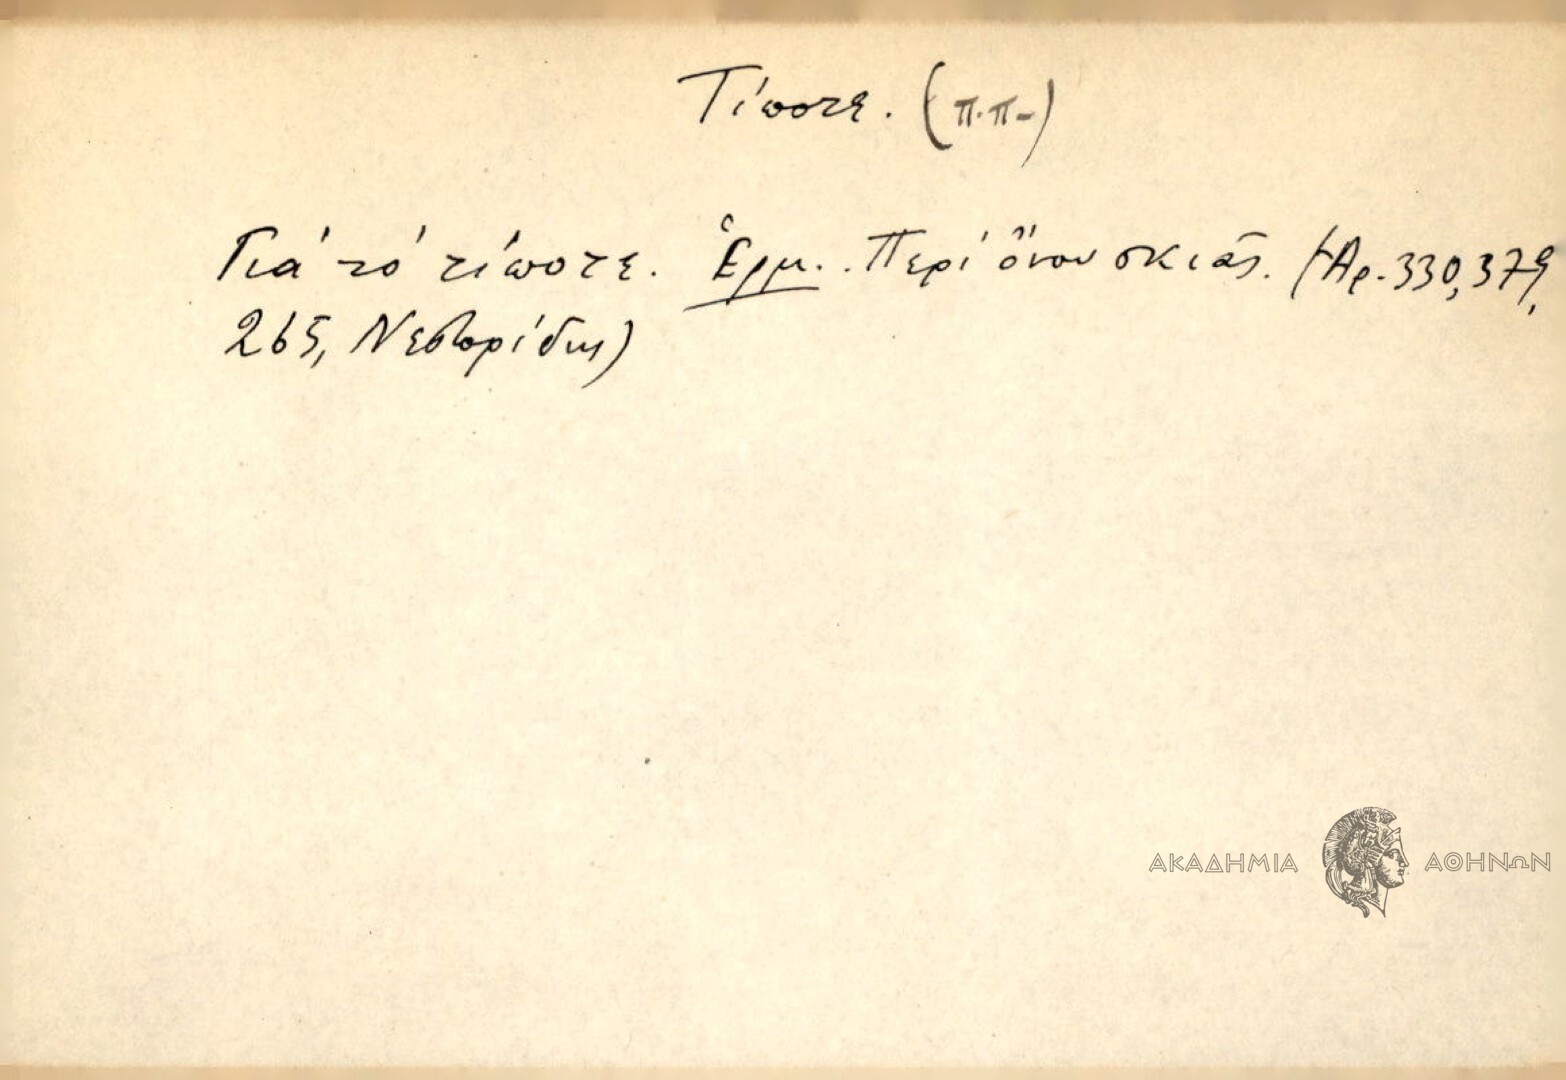 Τίποτε. (π.π-)
Γιά τό τίποτε. Ἑρμ. Περί ὄνου σκιᾶς. (Αρ. 330, 379,
265, Νεστορίδης)
ΑΚΑΔΗΜΙΑ ΑΘΗΝΩΝ